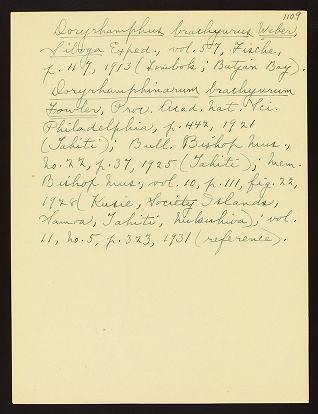 1109
Doryrhamphus brachyurus Weber,
Siboga Exped., vol. 57, Fische,
p. 117, 1913 (Lombok; Batjan Bay).
Doryrhamphinarum brachyurum
Fowler, Proc. Acad. Nat. Sci.
Philadelphia, p. 442, 1921
(Tahiti); Bull. Bishop Mus.,
no. 22, p. 37, 1925 (Tahiti); Mem.
Bishop Mus., vol. 10, p. 111, fig. 22,
1928 (Kusie, Society Islands,
Samoa, Tahiti, Nukuhiva); vol.
11, no. 5, p. 323, 1931 (reference).